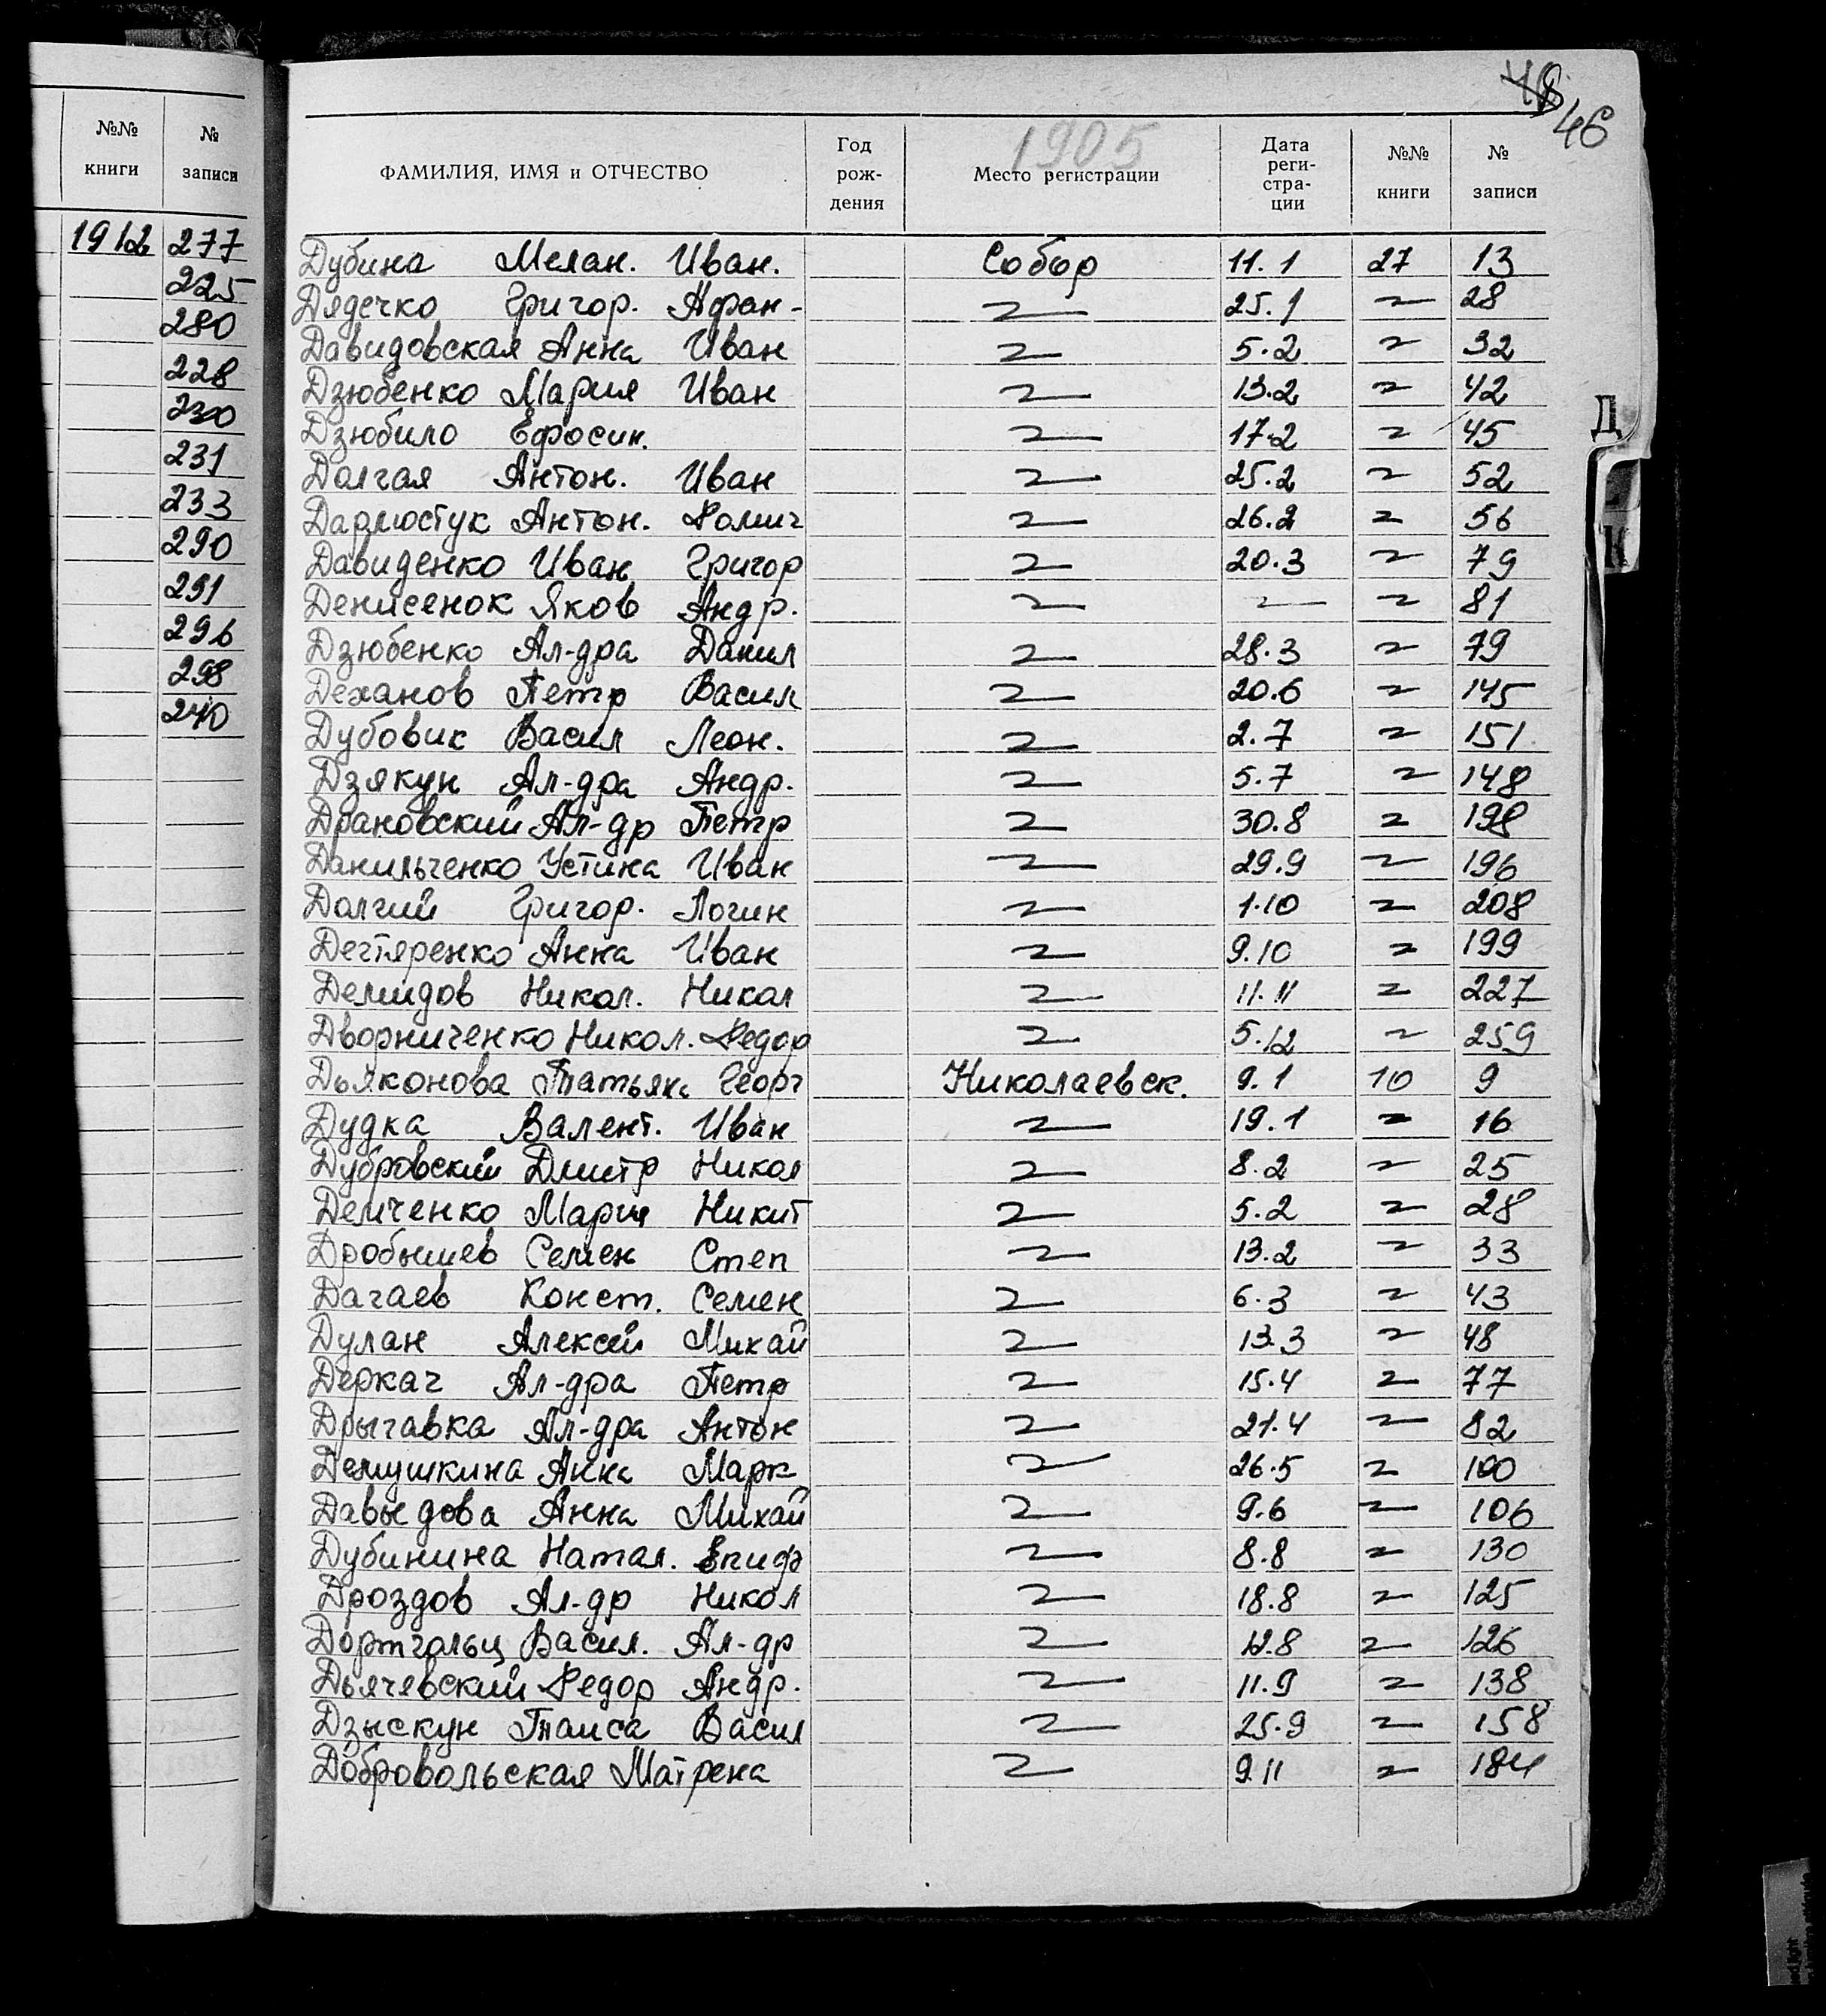 №№ книги № записи
1912 277
225
280
228
230
231
233
290
291
296
298
240
46
1905
ФАМИЛИЯ, ИМЯ и ОТЧЕСТВО Год рож- дения Место регистрации Дата реги- стра- ции №№ книги № записи
Дубина Мелан. Иван. Собор 11.1 27 13
Дядечко Григор. Афан- 〃 25.1 〃 28
Давидовская Анна Иван 〃 5.2 〃 32
Дзюбенко Мария Иван 〃 13.2 〃 42
Дзюбило Ефосин. 〃 17.2 〃 45
Долгая Антон. Иван 〃 25.2 〃 52
Дармостук Антон. Фомич 〃 26.2 〃 56
Давиденко Иван Григор 〃 20.3 〃 79
Денисенок Яков Андр. 〃 〃 〃 81
Дзюбенко Ал-дра Данил 〃 28.3 〃 79
Деханов Петр Васил 〃 20.6 〃 145
Дубовик Васил Леон. 〃 2.7 〃 151
Дзякун Ал-дра Андр. 〃 5.7 〃 148
Драновский Ал-др Петр 〃 30.8 〃 198
Данильченко Устина Иван 〃 29.9 〃 196
Долгий Григор. Логин 〃 1.10 〃 208
Дегтяренко Анна Иван 〃 9.10 〃 199
Демидов Никол. Никол 〃 11.11 〃 227
Дворниченко Никол. Федор 〃 5.12 〃 259
Дьяконова Татьяна Георг Николаевск. 9.1 10 9
Дудка Валент. Иван 〃 19.1 〃 16
Дубровский Дмитр Никол 〃 8.2 〃 25
Демченко Мария Никит 〃 5.2 〃 28
Дробышев Семен Степ 〃 13.2 〃 33
Дагаев Конст. Семен 〃 6.3 〃 43
Дулан Алексей Михай 〃 13.3 〃 48
Деркач Ал-дра Петр 〃 15.4 〃 77
Дрыгавка Ал-дра Антон 〃 21.4 〃 82
Демушкина Анна Марк 〃 26.5 〃 100
Давыдова Анна Михай 〃 9.6 〃 106
Дубинина Натал. Епиф 〃 8.8 〃 130
Дроздов Ал-др Никол 〃 18.8 〃 125
Дортгольц Васил. Ал-др 〃 12.8 〃 126
Дьячевский Федор Андр. 〃 11.9 〃 138
Дзыскун Таиса Васил 〃 25.9 〃 158
Добровольская Матрена 〃 9 11 〃 184
Д
К